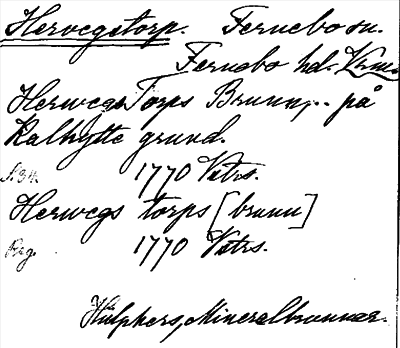 Herwegstorp. Fernebo sn.
Fernebo hd. Vrml.
Herwegs Torps Brunn, .. på
Kalhytte grund.
S. 34. 1770 Vstrs.
Herwegs torps [brunn]
Reg. 1770 Vstrs.
Hülphers, Mineralbrunnar.